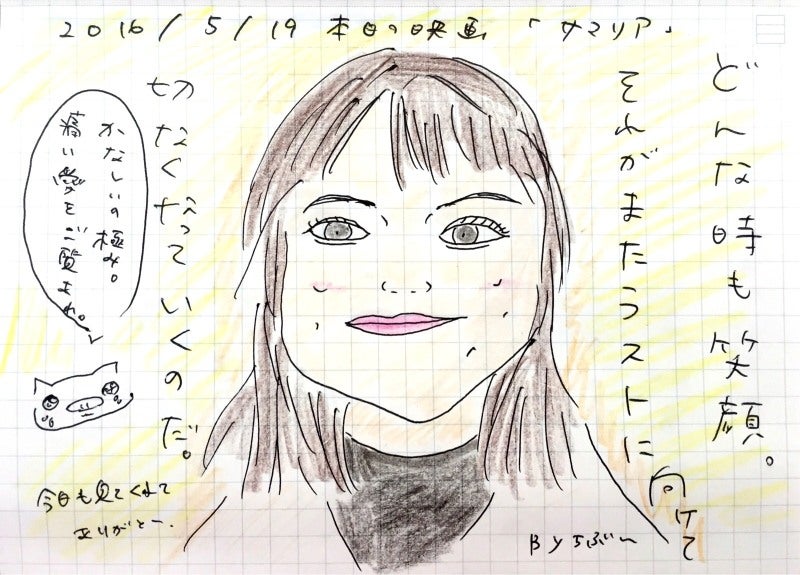 2016/5/19 本日の映画 「サマリア」
どんな時も笑顔。
それがまたラストに
向けて
切なくなっていくのだ。
かなしいの極み。
痛い愛をご覧まれ。
今日も見てくれて
ありがとー。
Byちぶー